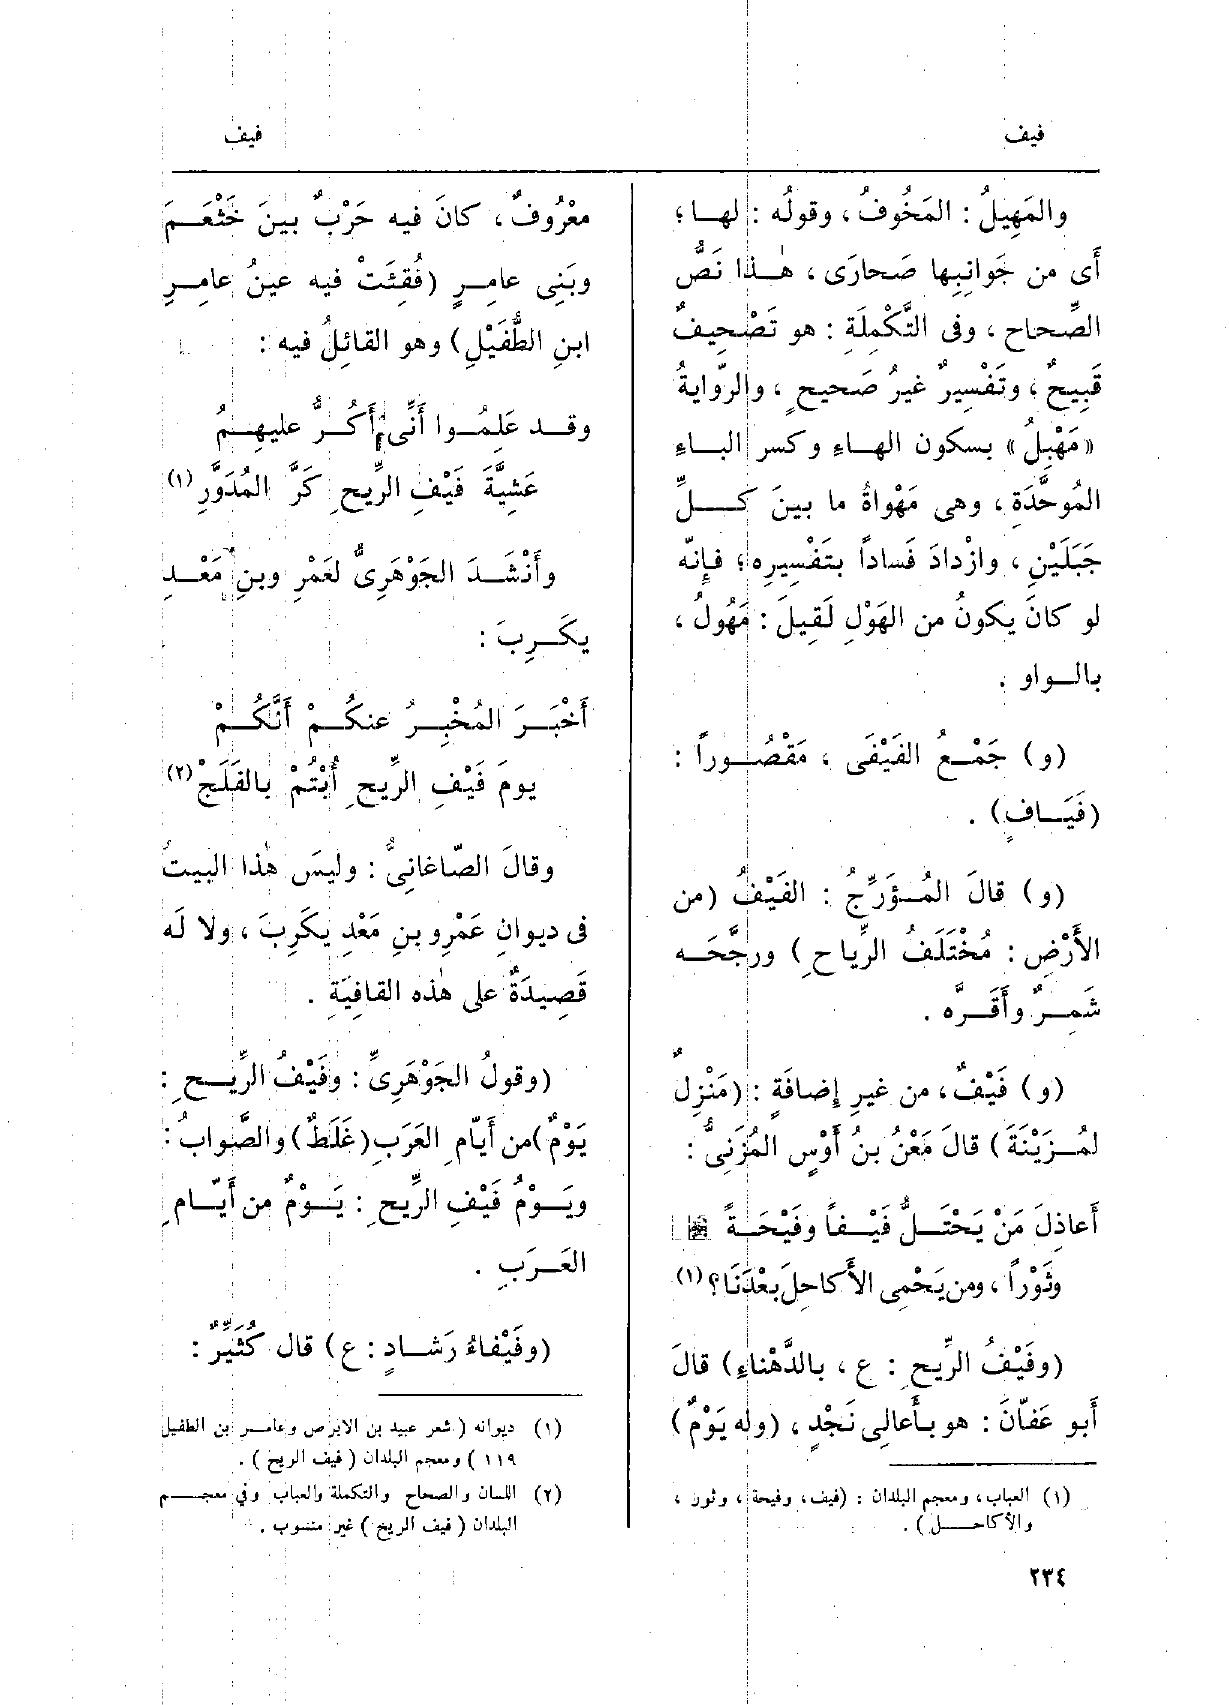 فيف
فيف
والمَهِيلُ : المَخُوفُ ، وقولُه : لها ؛
أَى من جَوانِبِها صَحارَى ، هٰذا نَصُّ
الصِّحاح ، وفى التَّكْمِلَةِ : هو تَصْحِيفٌ
قَبِيحٌ ، وتَفْسِيرٌ غيرُ صَحيحٍ ، والرِّوايةُ
« مَهْبِلُ » بسكون الهاءِ وكسر الباءِ
المُوحَّدَةِ ، وهى مَهْواةُ ما بينَ كلِّ
جَبَلَيْنِ ، وازْدادَ فَساداً بتَفْسِيرِه ؛ فإِنّه
لو كانَ يكونُ من الهَوْلِ لَقِيلَ : مَهُولُ ،
بالواو .
(و) جَمْعُ الفَيْفَى ، مَقْصُوراً :
(فَيَافٍ) .
(و) قالَ المُؤَرِّجُ : الفَيْفُ (من
الأَرْضِ : مُخْتَلَفُ الرِّياحِ) ورجَّحَه
شَمِرٌ وأَقَرَّه .
(و) فَيْفٌ ، من غيرِ إِضافَةٍ : (مَنْزِلٌ
لمُزَيْنَةَ) قالَ مَعْنُ بنُ أَوْسٍ المُزَنِىُّ :
أَعاذِلَ مَنْ يَحْتَلُّ فَيْفاً وفَيْحَةً
وثَوْراً ، ومن يَحْمِى الأَكاحِلَ بعْدَنَا؟ (١)
(وفَيْفُ الرِّيحِ : ع ، بالدَّهْناءِ) قالَ
أَبو عَفّانَ : هو بأَعالِى نَجْدٍ ، (وله يَوْمٌ)
(١) العباب ، ومعجم البلدان : (فيف ، وفيحة ، وثور ،
والأكاحل ) .
٢٣٤
معْرُوفٌ ، كانَ فيه حَرْبٌ بينَ خَثْعَمَ
وبَنِى عامِرٍ (فُقِئَتْ فيه عينُ عامِرِ
ابنِ الطُّفَيْلِ) وهو القائِلُ فيه :
وقد عَلِمُوا أَنِّى أَكُرُّ عليهِمُ
عَشِيَّةَ فَيْفِ الرِّيحِ كَرَّ المُدَوَّرِ (١)
وأَنْشَدَ الجَوْهَرِىُّ لعَمْرِ وبنِ مَعْدِ
يكَرِبَ :
أَخْبَرَ المُخْبِرُ عنكُمْ أَنَّكُمْ
يومَ فَيْفِ الرِّيحِ أُبْتُمْ بالفَلَجْ (٢)
وقالَ الصّاغانِىُّ : وليسَ هٰذا البيتُ
فى ديوانِ عَمْرِو بنِ مَعْدِ يكَرِبَ ، ولا لَه
قَصِيدَةٌ على هٰذه القافِيَةِ .
(وقولُ الجَوْهَرِىِّ : وفَيْفُ الرِّيحِ :
يَوْمٌ) من أَيّامِ العَرَبِ (غَلَطٌ) والصَّوابُ :
ويَوْمُ فَيْفِ الرِّيحِ : يَوْمٌ من أَيّامِ
العَرَبِ .
(وفَيْفاءُ رَشَادٍ : ع) قال كُثَيِّرٌ :
(١) ديوانه ( شعر عبيد بن الابرص وعامر بن الطفيل
١١٩ ) ومعجم البلدان ( فيف الريح ) .
(٢) اللسان والصحاح والتكملة والعباب وفي معجم
البلدان ( فيف الريح ) غير منسوب .